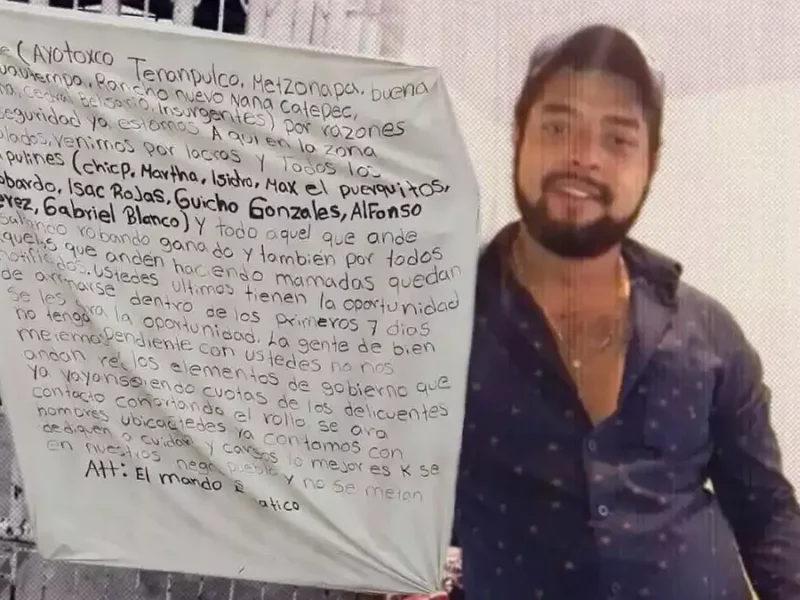 e (AYOTOXCO TENANPULCO, METZONAPA, buena
uautempa, Rancho nuevo Nana Catepec,
na, Cedral Belsario, Insurgentes) por razones
seguridad ya estamos Aqui en la zona
lados, venimos por lacras y Todos los
apulines (chicp, Martha, Isidro, Max el puerquitos,
obardo, Isac Rojas, Guicho Gonzales, Alfonso
erez, Gabriel Blanco) y todo aquel que ande
saltando robando ganado y también por todos
aquellos que anden haciendo mamadas quedan
notificados. Ustedes ultimos tienen la oportunidad
de arrinarse dentro de los primeros 7 dias
se les ara la oportunidad. La gente de bien
no tenga pendiente con ustedes no nos
meremo
andan re los elementos de gobierno que
ya vayanse iendo cuotas de los delicuentes
contacto con ortando el rollo se ara
nomores ubica tedes ya contamos con
dediquen a cuidar y cargos lo mejor es k se
en nuestros nego pueblo y no se metan
Att: El mando atico